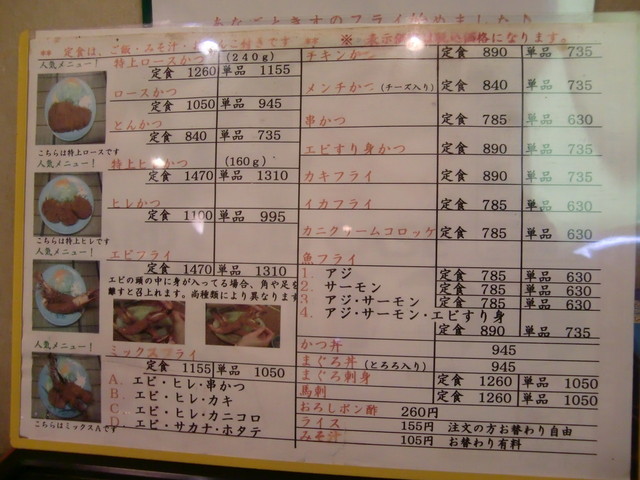 あなごときすのフライ始めました
** 定食は、ご飯・みそ汁・ 付きです **
※ 表示 税込価格になります。
人気メニュー!
特上ロースかつ (240g)
定食 1260 単品 1155
ロースかつ
定食 1050 単品 945
とんかつ
定食 840 単品 735
こちらは特上ロースです
人気メニュー!
特上ヒレかつ (160g)
定食 1470 単品 1310
ヒレかつ
定食 1100 単品 995
こちらは特上ヒレです
人気メニュー!
エビフライ
定食 1470 単品 1310
エビの頭の中に身が入ってる場合、角や足を
離すと召上れます。尚種類により異なります
ミックスフライ
定食 1155 単品 1050
人気メニュー!
A. エビ・ヒレ・串かつ
B. エビ・ヒレ・カキ
C. エビ・ヒレ・カニコロ
D. エビ・サカナ・ホタテ
こちらはミックスAです
チキンかつ 定食 890 単品 735
メンチかつ (チーズ入り) 定食 840 単品 735
串かつ 定食 785 単品 630
エビすり身かつ 定食 890 単品 735
カキフライ 定食 890 単品 735
イカフライ 定食 785 単品 630
カニクリームコロッケ 定食 785 単品 630
魚フライ
1. アジ 定食 785 単品 630
2. サーモン 定食 785 単品 630
3. アジ・サーモン 定食 785 単品 630
4. アジ・サーモン・エビすり身
定食 890 単品 735
かつ丼 945
まぐろ丼 (とろろ入り) 945
まぐろ刺身 定食 1260 単品 1050
馬刺 定食 1260 単品 1050
おろしポン酢 260円
ライス 155円 注文の方お替わり自由
みそ汁 105円 お替わり有料